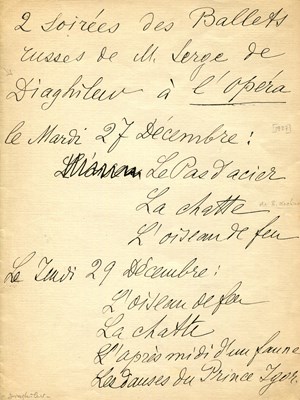 2 soirées des Ballets
russes de M. Serge de
Diaghilew à l'opéra
le Mardi 27 Décembre :
Le Pas d'acier
La chatte
L'oiseau de feu
Le Jeudi 29 Décembre :
L'oiseau de feu
La chatte
L'après midi d'un faune
Les danses du Prince Igor.